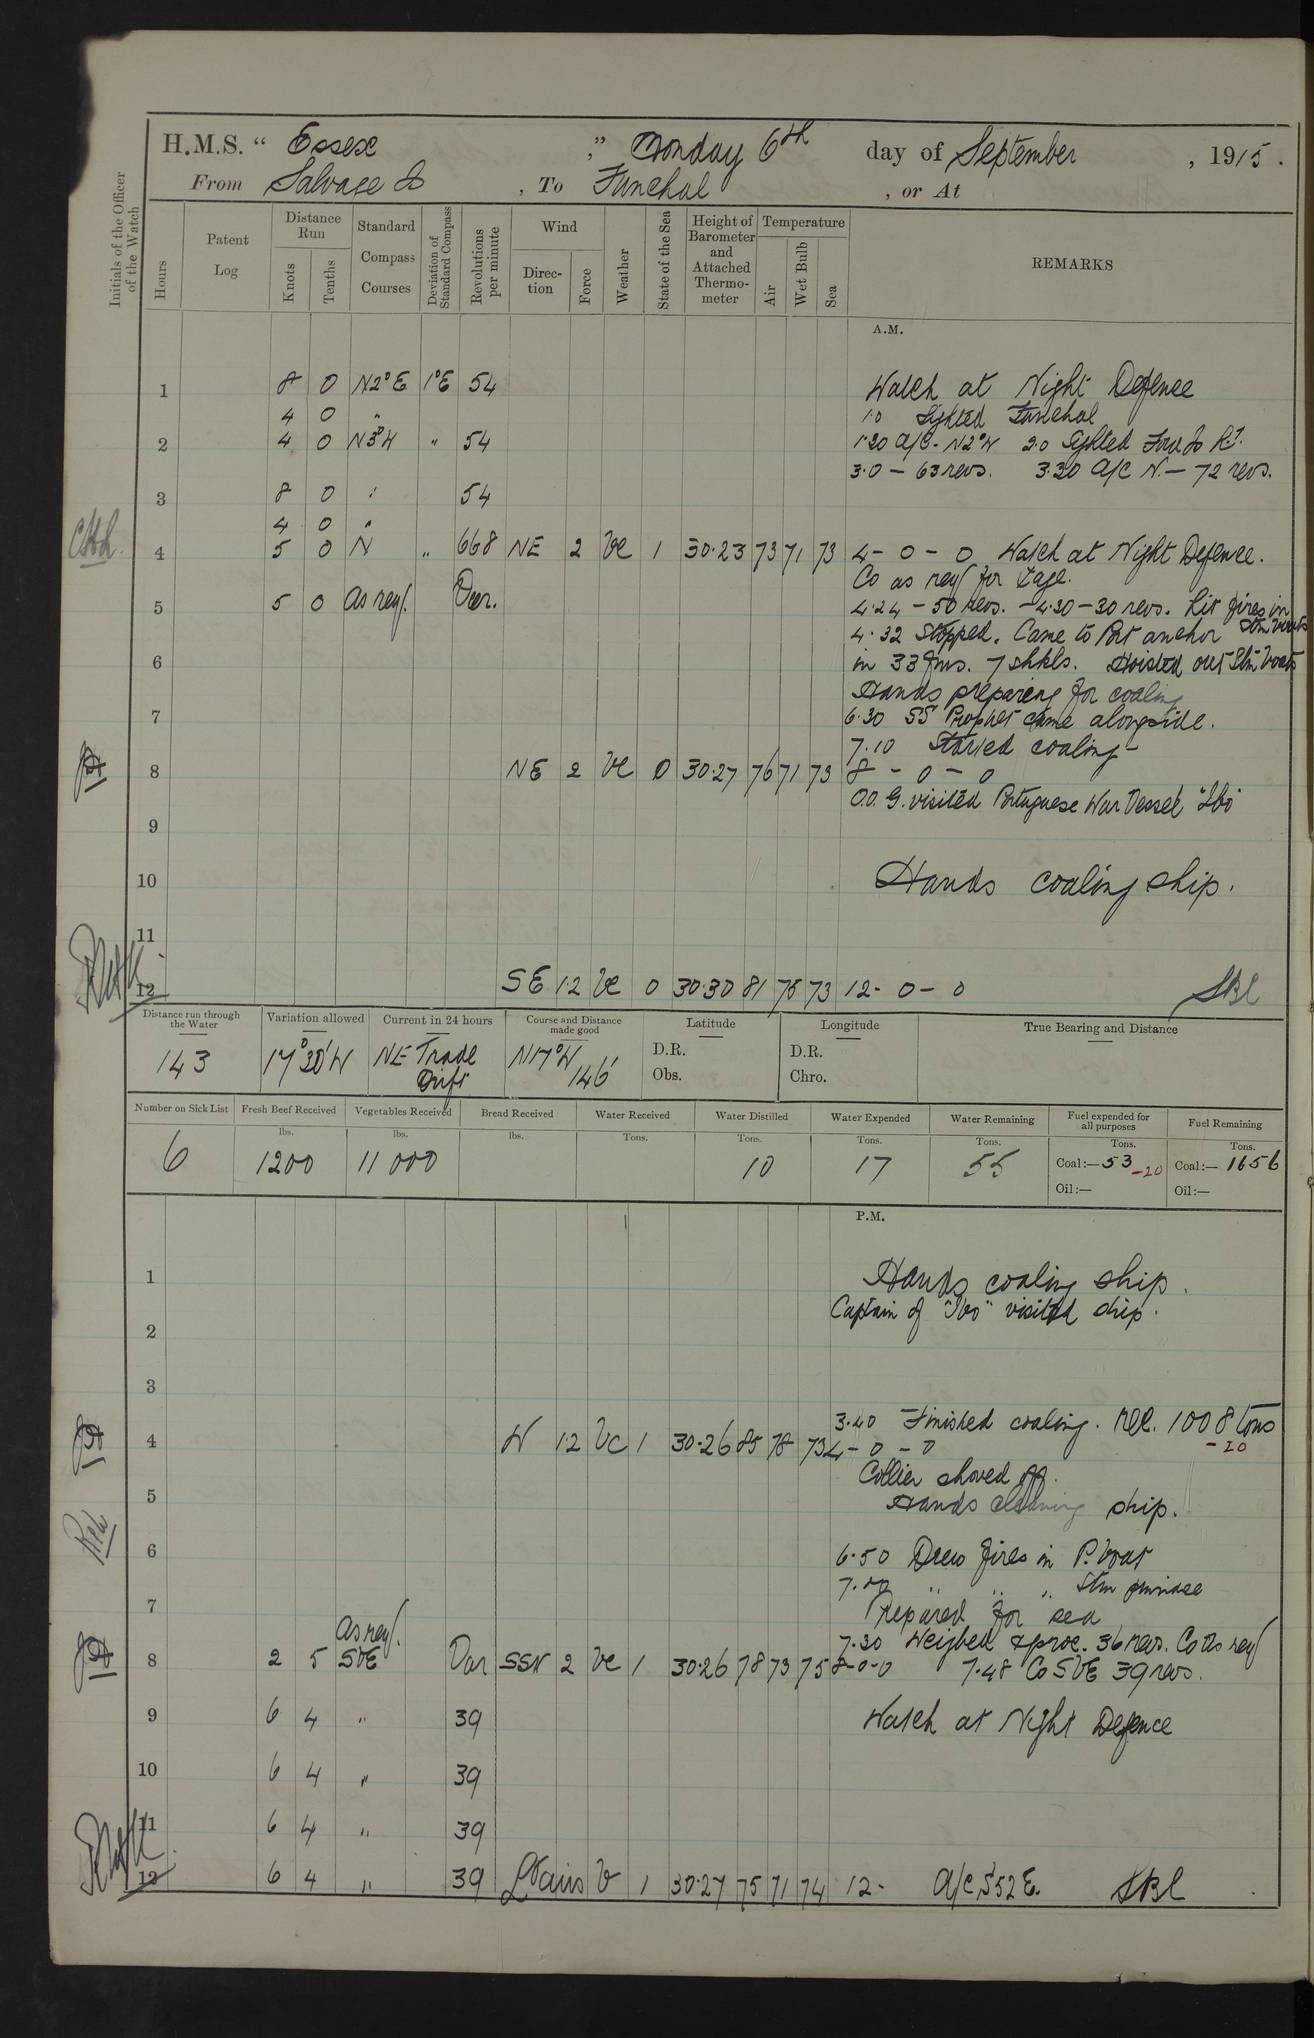 H.M.S. " Essex ," Monday 6th day of September , 1915 .
From Salvage Is , To Funchal , or At
Initials of the Officer of the Watch
Hours
Patent Log
Distance Run
Knots
Tenths
Standard Compass Courses
Deviation of Standard Compass
Revolutions per minute
Wind
Direc-tion
Force
Weather
State of the Sea
Height of Barometer and Attached Thermo-meter
Temperature
Air
Wet Bulb
Sea
REMARKS
A.M.
1 8 0 N2°E 1°E 54 Watch at Night Defence
4 0 " 1.0 Sighted Funchal
2 4 0 N3°W " 54 1.20 A/C - N2°W 2.0 Sighted
3.0 - 63 revs. 3.30 A/C N. - 72 revs.
3 8 0 " 54
4 0 "
4 5 0 N " 66.8 NE 2 bc 1 30.23 73 71 73 4 - 0 - 0 Watch at Night Defence.
Co as req for
5 5 0 As req. Var. 4.24 - 50 revs. - 4.30 - 30 revs. Lit fires in Stm boats
4.32 Stopped. Came to Port anchor
6 in 33 fms. 7 shkls. Hoisted out Stm boats
Hands preparing for coaling
7 6.30 SS Prophet came alongside.
7.10 Started coaling -
8 NE 2 bc 0 30.27 76 71 73 8 - 0 - 0
O.O.G. visited Portuguese War Vessel "Ibo"
9
10 Hands coaling ship.
11
12 SE 1.2 bc 0 30.30 81 75 73 12 - 0 - 0 SBL
Distance run through the Water
Variation allowed
Current in 24 hours
Course and Distance made good
Latitude
Longitude
True Bearing and Distance
143 17°30'W NE Trade Drift N17°W 146' D.R. D.R.
Obs. Chro.
Number on Sick List
Fresh Beef Received
Vegetables Received
Bread Received
Water Received
Water Distilled
Water Expended
Water Remaining
Fuel expended for all purposes
Fuel Remaining
lbs. lbs. lbs. Tons. Tons. Tons. Tons. Tons. Tons.
6 1200 11000 10 17 55 Coal:— 53 -20 Coal:— 1656
Oil:— Oil:—
P.M.
1 Hands coaling ship.
Captain of "Ibo" visited ship.
2
3
3.40 Finished coaling. Rec. 1008 tons
4 W 1.2 bc 1 30.26 85 78 73 4 - 0 - 0 -20
Collier shoved off.
5 Hands cleaning ship.
6 6.50 Drew fires in P. boat
" " " Stm pinnace
7 Prepared for sea
As req. 7.30 Weighed & proc. 36 revs. Co as req
8 2 5 SbE Var SSW 2 bc 1 30.26 78 73 75 8-0-0 7.48 Co SbE 39 revs.
9 6 4 " 39 Watch at Night Defence
10 6 4 " 39
11 6 4 " 39
12 6 4 " 39 Lt airs b 1 30.27 75 71 74 12 - A/C S52E. SBL